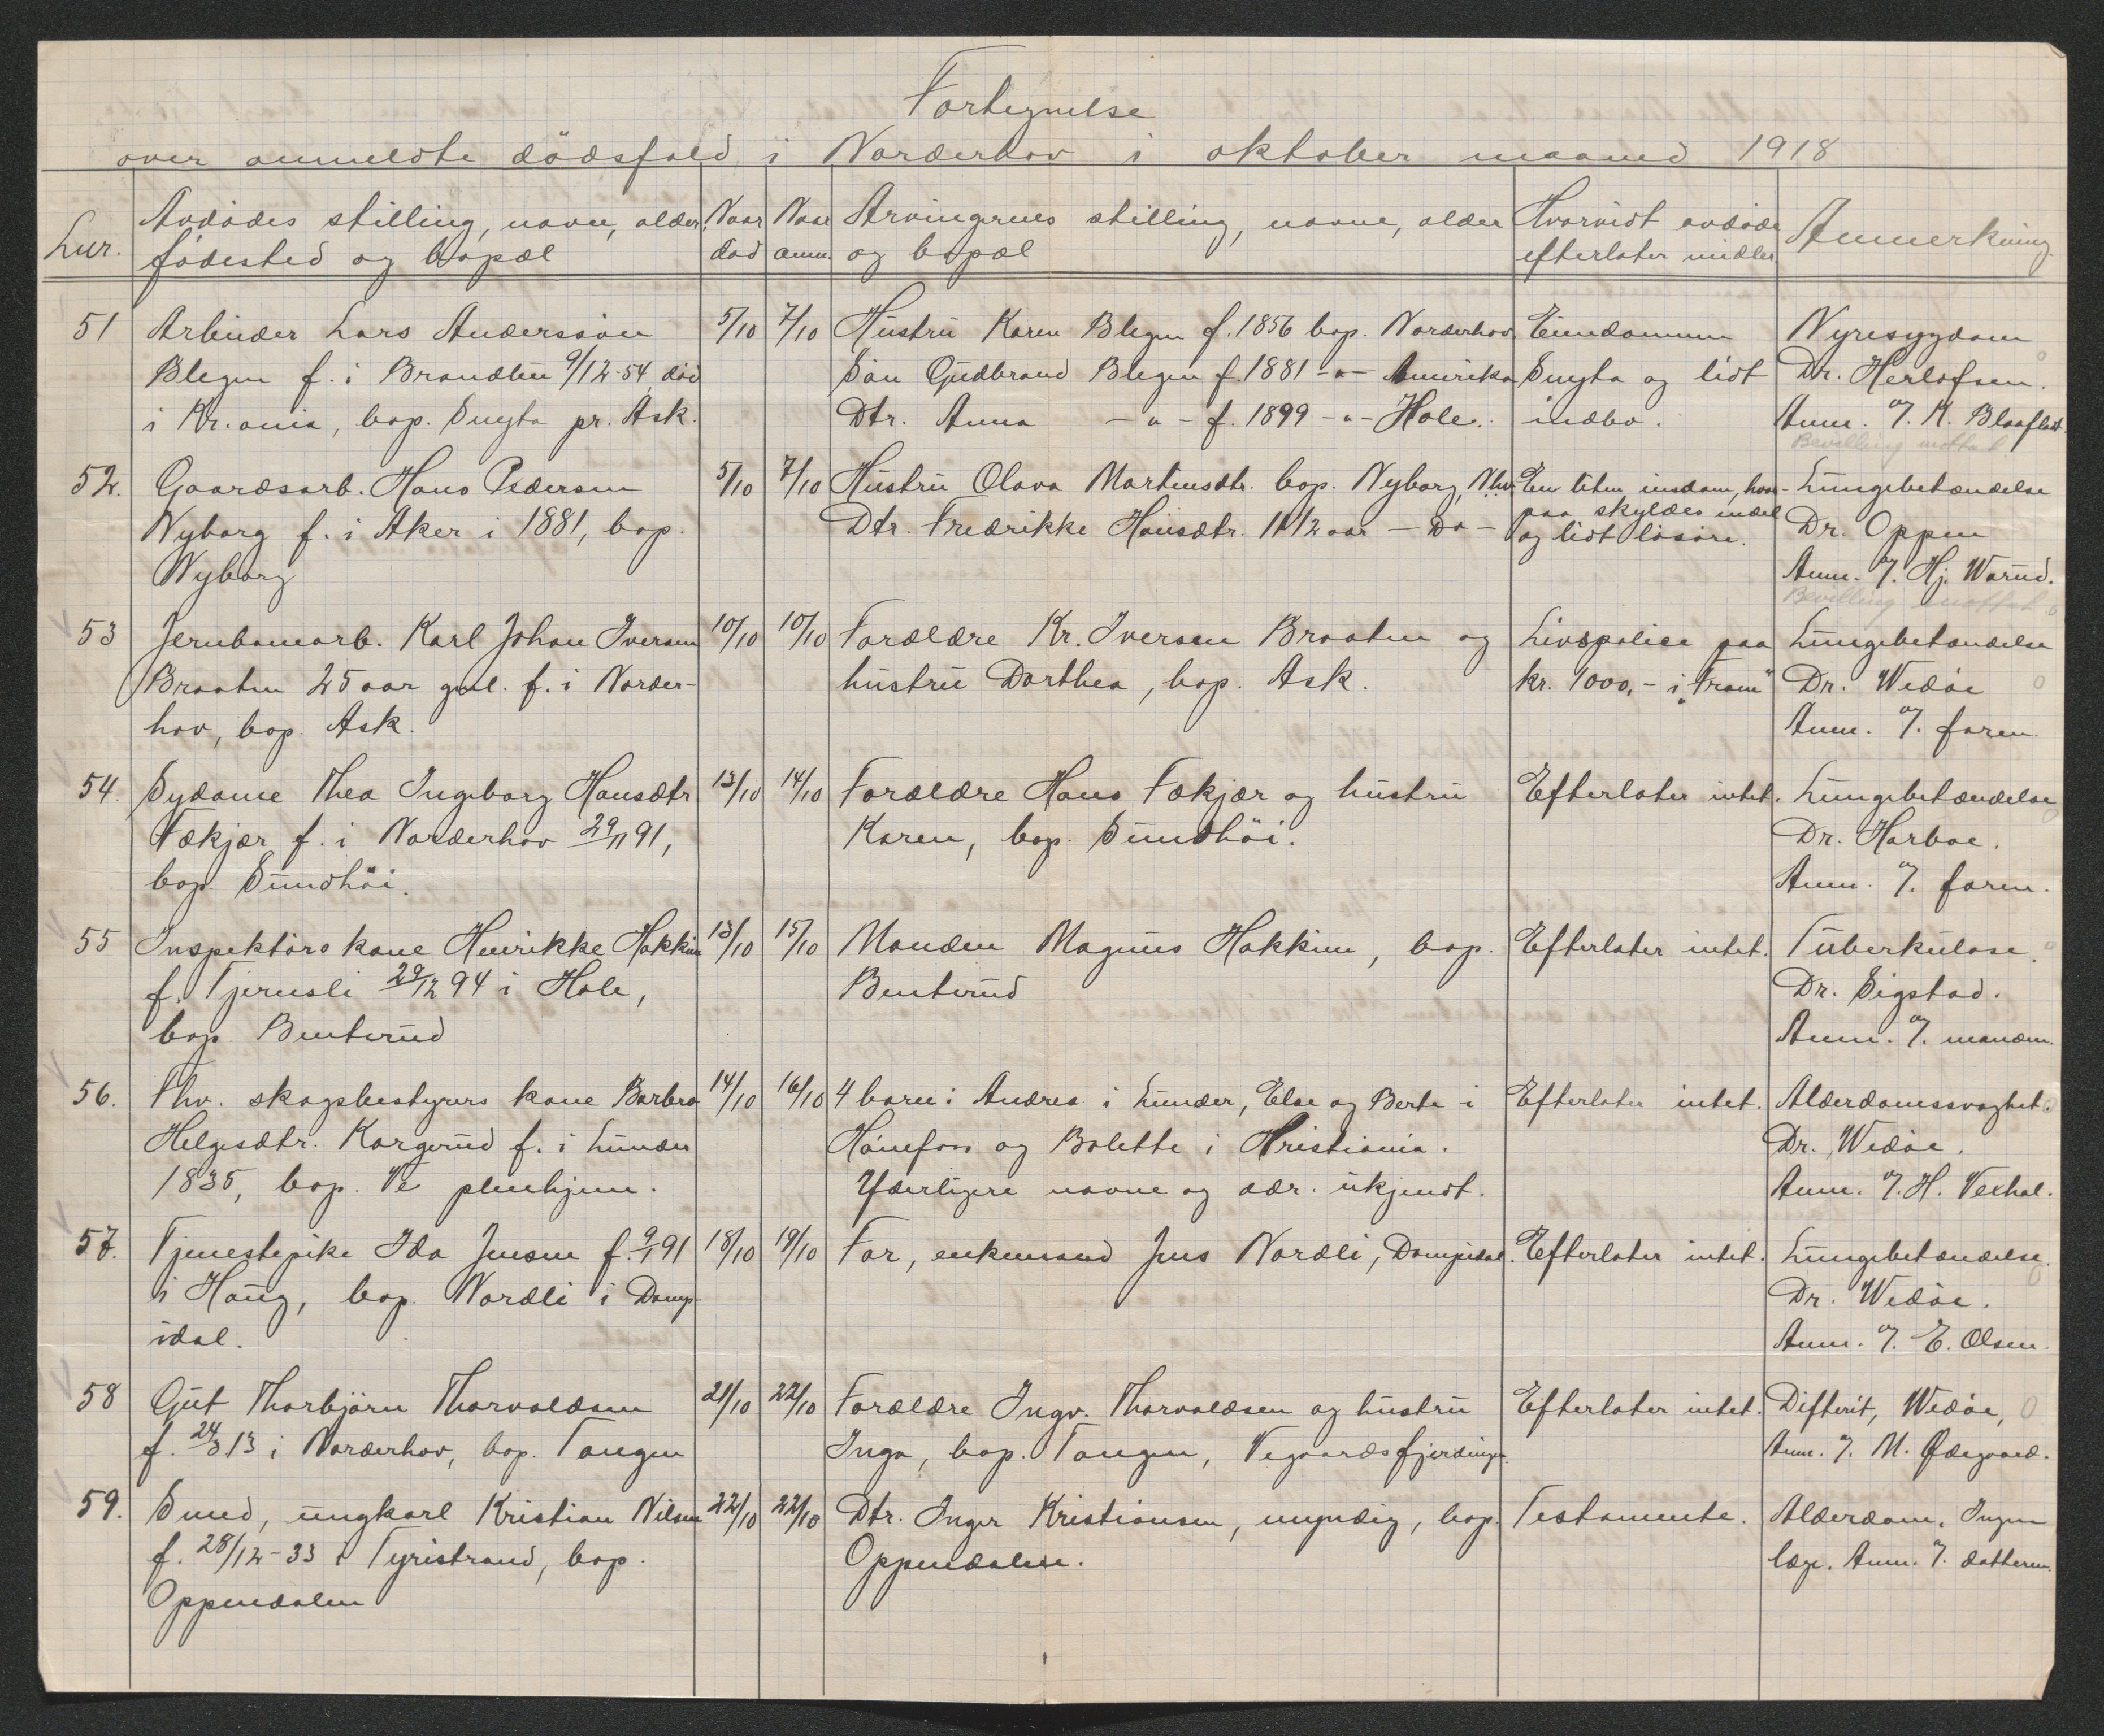 Fortegnelse
over anmeldte dödsfald i Norderhov i oktober maaned 1918
Lnr.
Avdödes stilling, navn, alder,
födested og bopæl
Naar
död
Naar
anm.
Arvingernes stilling, navne, alder
og bopæl
Hvorvidt avdöde
efterlater midler
Anmerkning
51
Arbeider Lars Anderssön
Blegen f. i Brandbu 9/12-54, död
i Kr.ania, bop. Snyta pr. Ask.
5/10
7/10
Hustru Karen Blegen f. 1856 bop. Norderhov
Sön Gudbrand Blegen f. 1881 -"- Amerika
Dtr. Anna -"- f. 1899 -"- Hole.
Eiendommen
Snyta og lidt
indbo.
Nyresygdom
Dr. Herlofsen.
Anm. af K. Blaaflat.
Bevilling mottat
52.
Gaardsarb. Hans Pedersen
Nyborg f. i Aker i 1881, bop.
Nyborg
5/10
7/10
Hustru Olava Martinsdtr. bop. Nyborg, Nhv.
Dtr. Fredrikke Hansdtr. 11 1/2 aar - Do -
En liten eiendom, hvor-
paa skyldes endel
og lidt lösöre.
Lungebetændelse
Dr. Oppen
Anm. af Hj. Warud.
Bevilling mottat
53
Jernbanearb. Karl Johan Iversen
Braaten 25 aar gml. f. i Norder-
hov, bop. Ask.
10/10
10/10
Forældre Kr. Iversen Braaten og
hustru Dorthea, bop. Ask.
Livspolice paa
kr. 1000,- i "Fram"
Lungebetændelse
Dr. Wedöe
Anm. af faren.
54.
Sydame Thea Ingeborg Hansdtr
Fækjær f. i Norderhov 29/11 91,
bop. Sundhöi.
13/10
14/10
Forældre Hans Fækjær og hustru
Karen, bop. Sundhöi.
Efterlater intet.
Lungebetændelse
Dr. Harboe.
Anm. af faren.
55
Inspektörs kone Henrikke Hakkim
f. Tjernsli 29/12 94 i Hole,
bop. Benterud
13/10
15/10
Manden Magnus Hakkim, bop.
Benterud
Efterlater intet.
Tuberkulose.
Dr. Sigstad.
Anm. af manden.
56.
Fhv. skogsbestyrers kone Barbro
Helgesdtr. Korgerud f. i Lunder
1835, bop. Ve pleiehjem.
14/10
16/10
4 barn: Andrea i Lunder, Else og Berte i
Hönefoss og Bolette i Kristiania.
Yderligere navne og adr. ukjendt.
Efterlater intet.
Alderdomssvaghet.
Dr. Wedöe.
Anm. af H. Vexhal.
57.
Tjenestepike Ida Jensen f. 9/1 91
i Haug, bop. Nordli i Damp-
idal.
18/10
19/10
Far, enkemand Jens Nordli, Dampidal.
Efterlater intet.
Lungebetændelse.
Dr. Wedöe.
Anm. af E. Olsen.
58
Gut Thorbjörn Thorvaldsen
f. 24/3 13 i Norderhov, bop. Tangen
21/10
22/10
Forældre Ingv. Thorvaldsen og hustru
Inga, bop. Tangen, Vegaardsfjerdingen.
Efterlater intet.
Difterit, Wedöe,
Anm. af M. Ødegaard.
59.
Smed, ungkarl Kristian Nilsen
f. 28/12-33 i Tyristrand, bop.
Oppendalen
22/10
22/10
Dtr. Inger Kristiansen, myndig, bop.
Oppendalen.
Testamente.
Alderdom. Ingen
læge. Anm. af datteren.